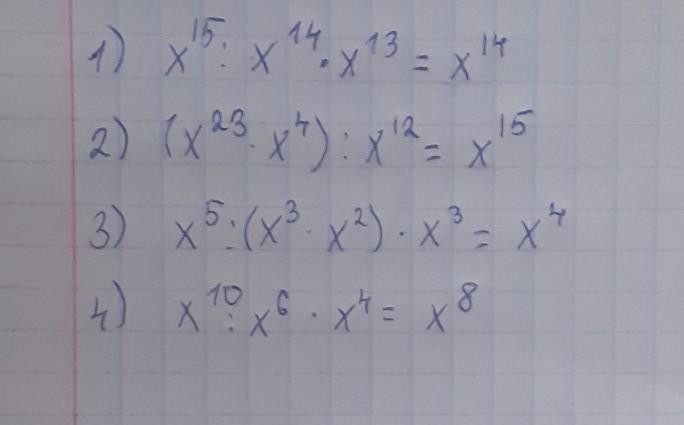 1) x¹⁵ : x¹⁴ · x¹³ = x¹⁴
2) (x²³ · x⁴) : x¹² = x¹⁵
3) x⁵ : (x³ · x²) · x³ = x⁴
4) x¹⁰ : x⁶ · x⁴ = x⁸